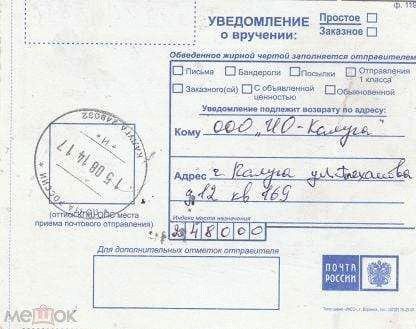 ф. 119
УВЕДОМЛЕНИЕ
о вручении:
Простое
Заказное
Обведенное жирной чертой заполняется отправителем
Письма Бандероли Посылки Отправления 1 класса
Заказного(ой) С объявленной ценностью Обыкновенной
Уведомление подлежит возврату по адресу:
Кому ООО "ИО-Калуга"
Адрес г Калуга ул.
д 12 кв 169
Индекс места назначения
248000
КАЛУГА 248032
15 08 14 17
ПОЧТА РОССИИ
(оттиск КПШ ОПС места
приема почтового отправления)
Для дополнительных отметок отправителя
ПОЧТА
РОССИИ
мешок